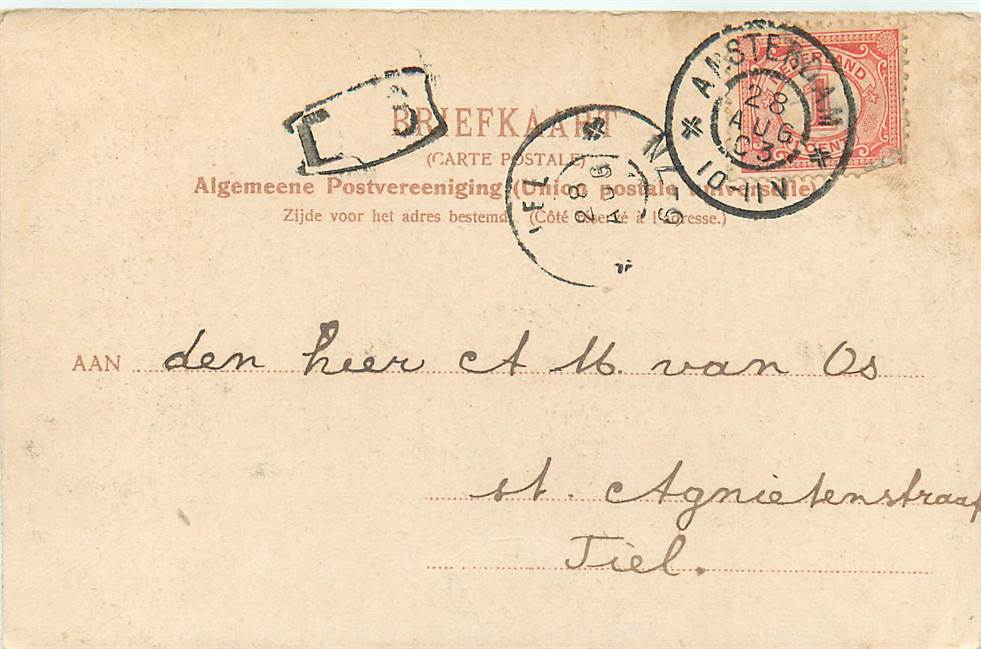 BRIEFKAART
(CARTE POSTALE)
Algemeene Postvereeniging (Union postale universelle)
Zijde voor het adres bestemd. (Côté réservé à l'adresse.)
AMSTERDAM
28
AUG
03
10-11 N
NEDERLAND
1
CENT
28
AUG
AAN den heer A M. van Os
st. Agnietenstraat
Tiel.